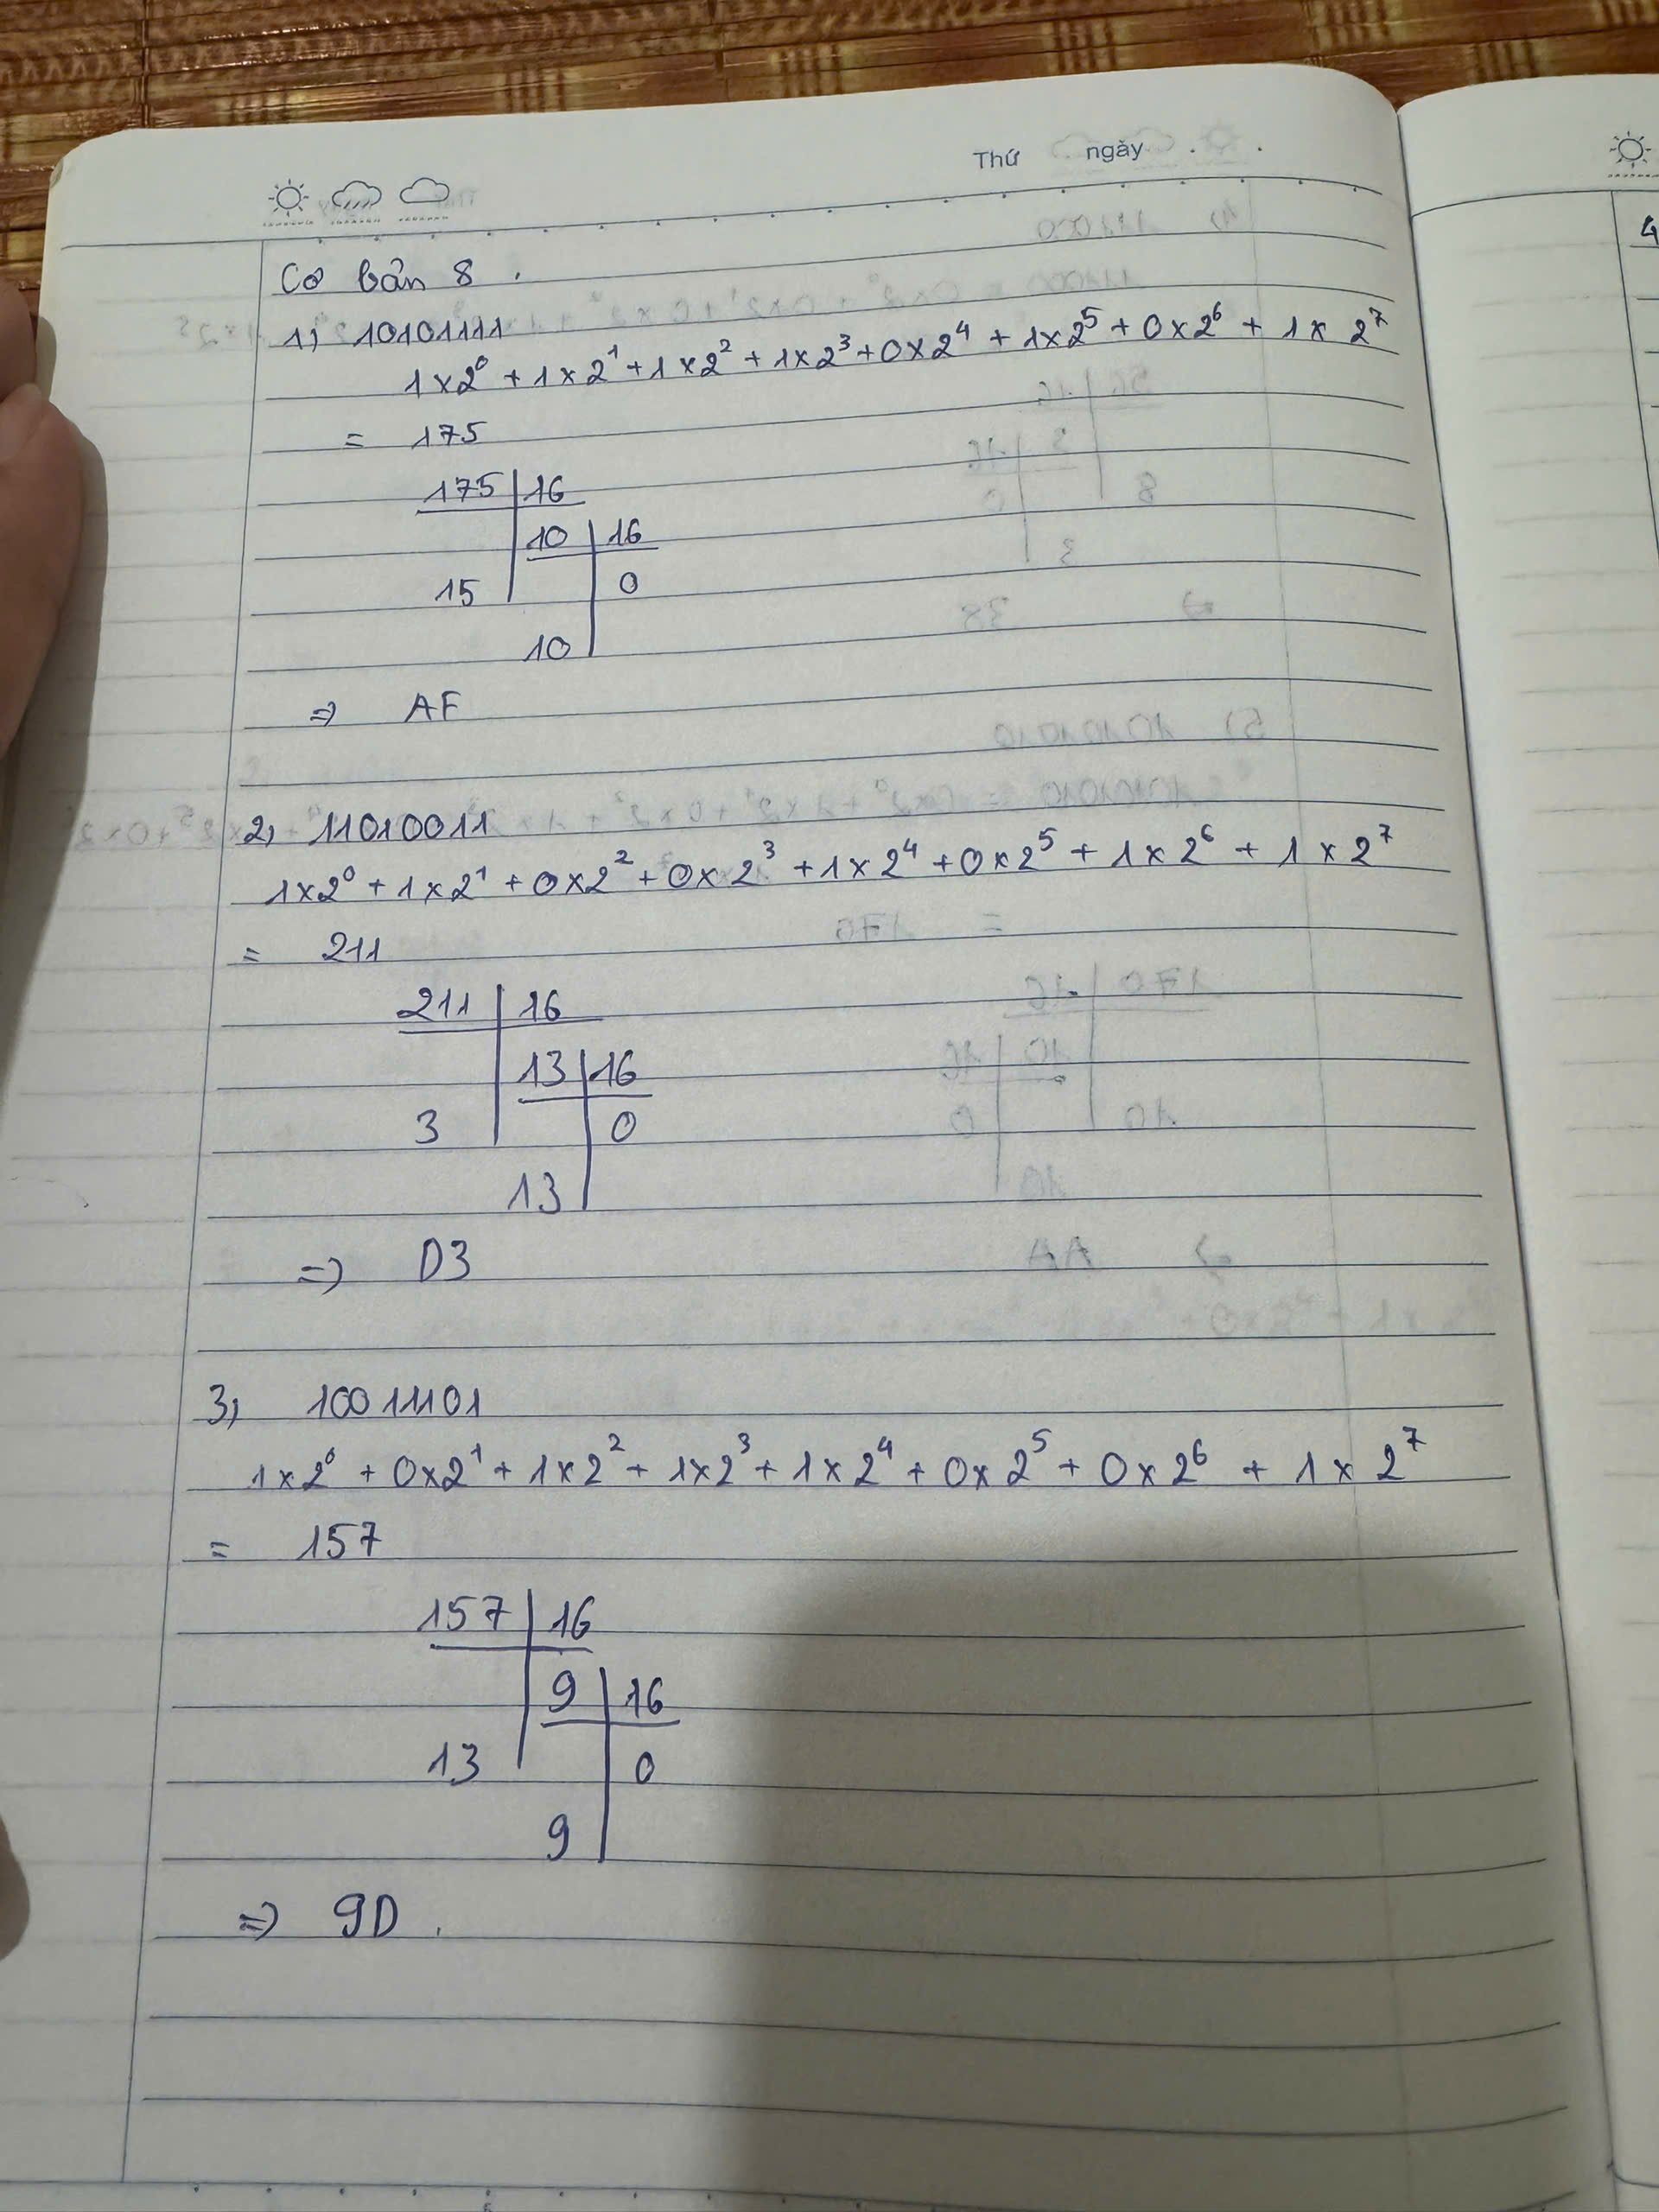 Thứ ngày . .
Cơ bản 8 .
1, 10101111
1x2⁰ + 1x2¹ + 1x2² + 1x2³ + 0x2⁴ + 1x2⁵ + 0x2⁶ + 1x 2⁷
= 175
175 | 16
10 | 16
15 0
10
=> AF
2, 11010011
1x2⁰ + 1x2¹ + 0x2² + 0x2³ + 1x2⁴ + 0x2⁵ + 1x2⁶ + 1x2⁷
= 211
211 | 16
13 | 16
3 0
13
=> D3
3, 10011101
1x2⁰ + 0x2¹ + 1x2² + 1x2³ + 1x2⁴ + 0x2⁵ + 0x2⁶ + 1x2⁷
= 157
157 | 16
9 | 16
13 0
9
=> 9D .
4